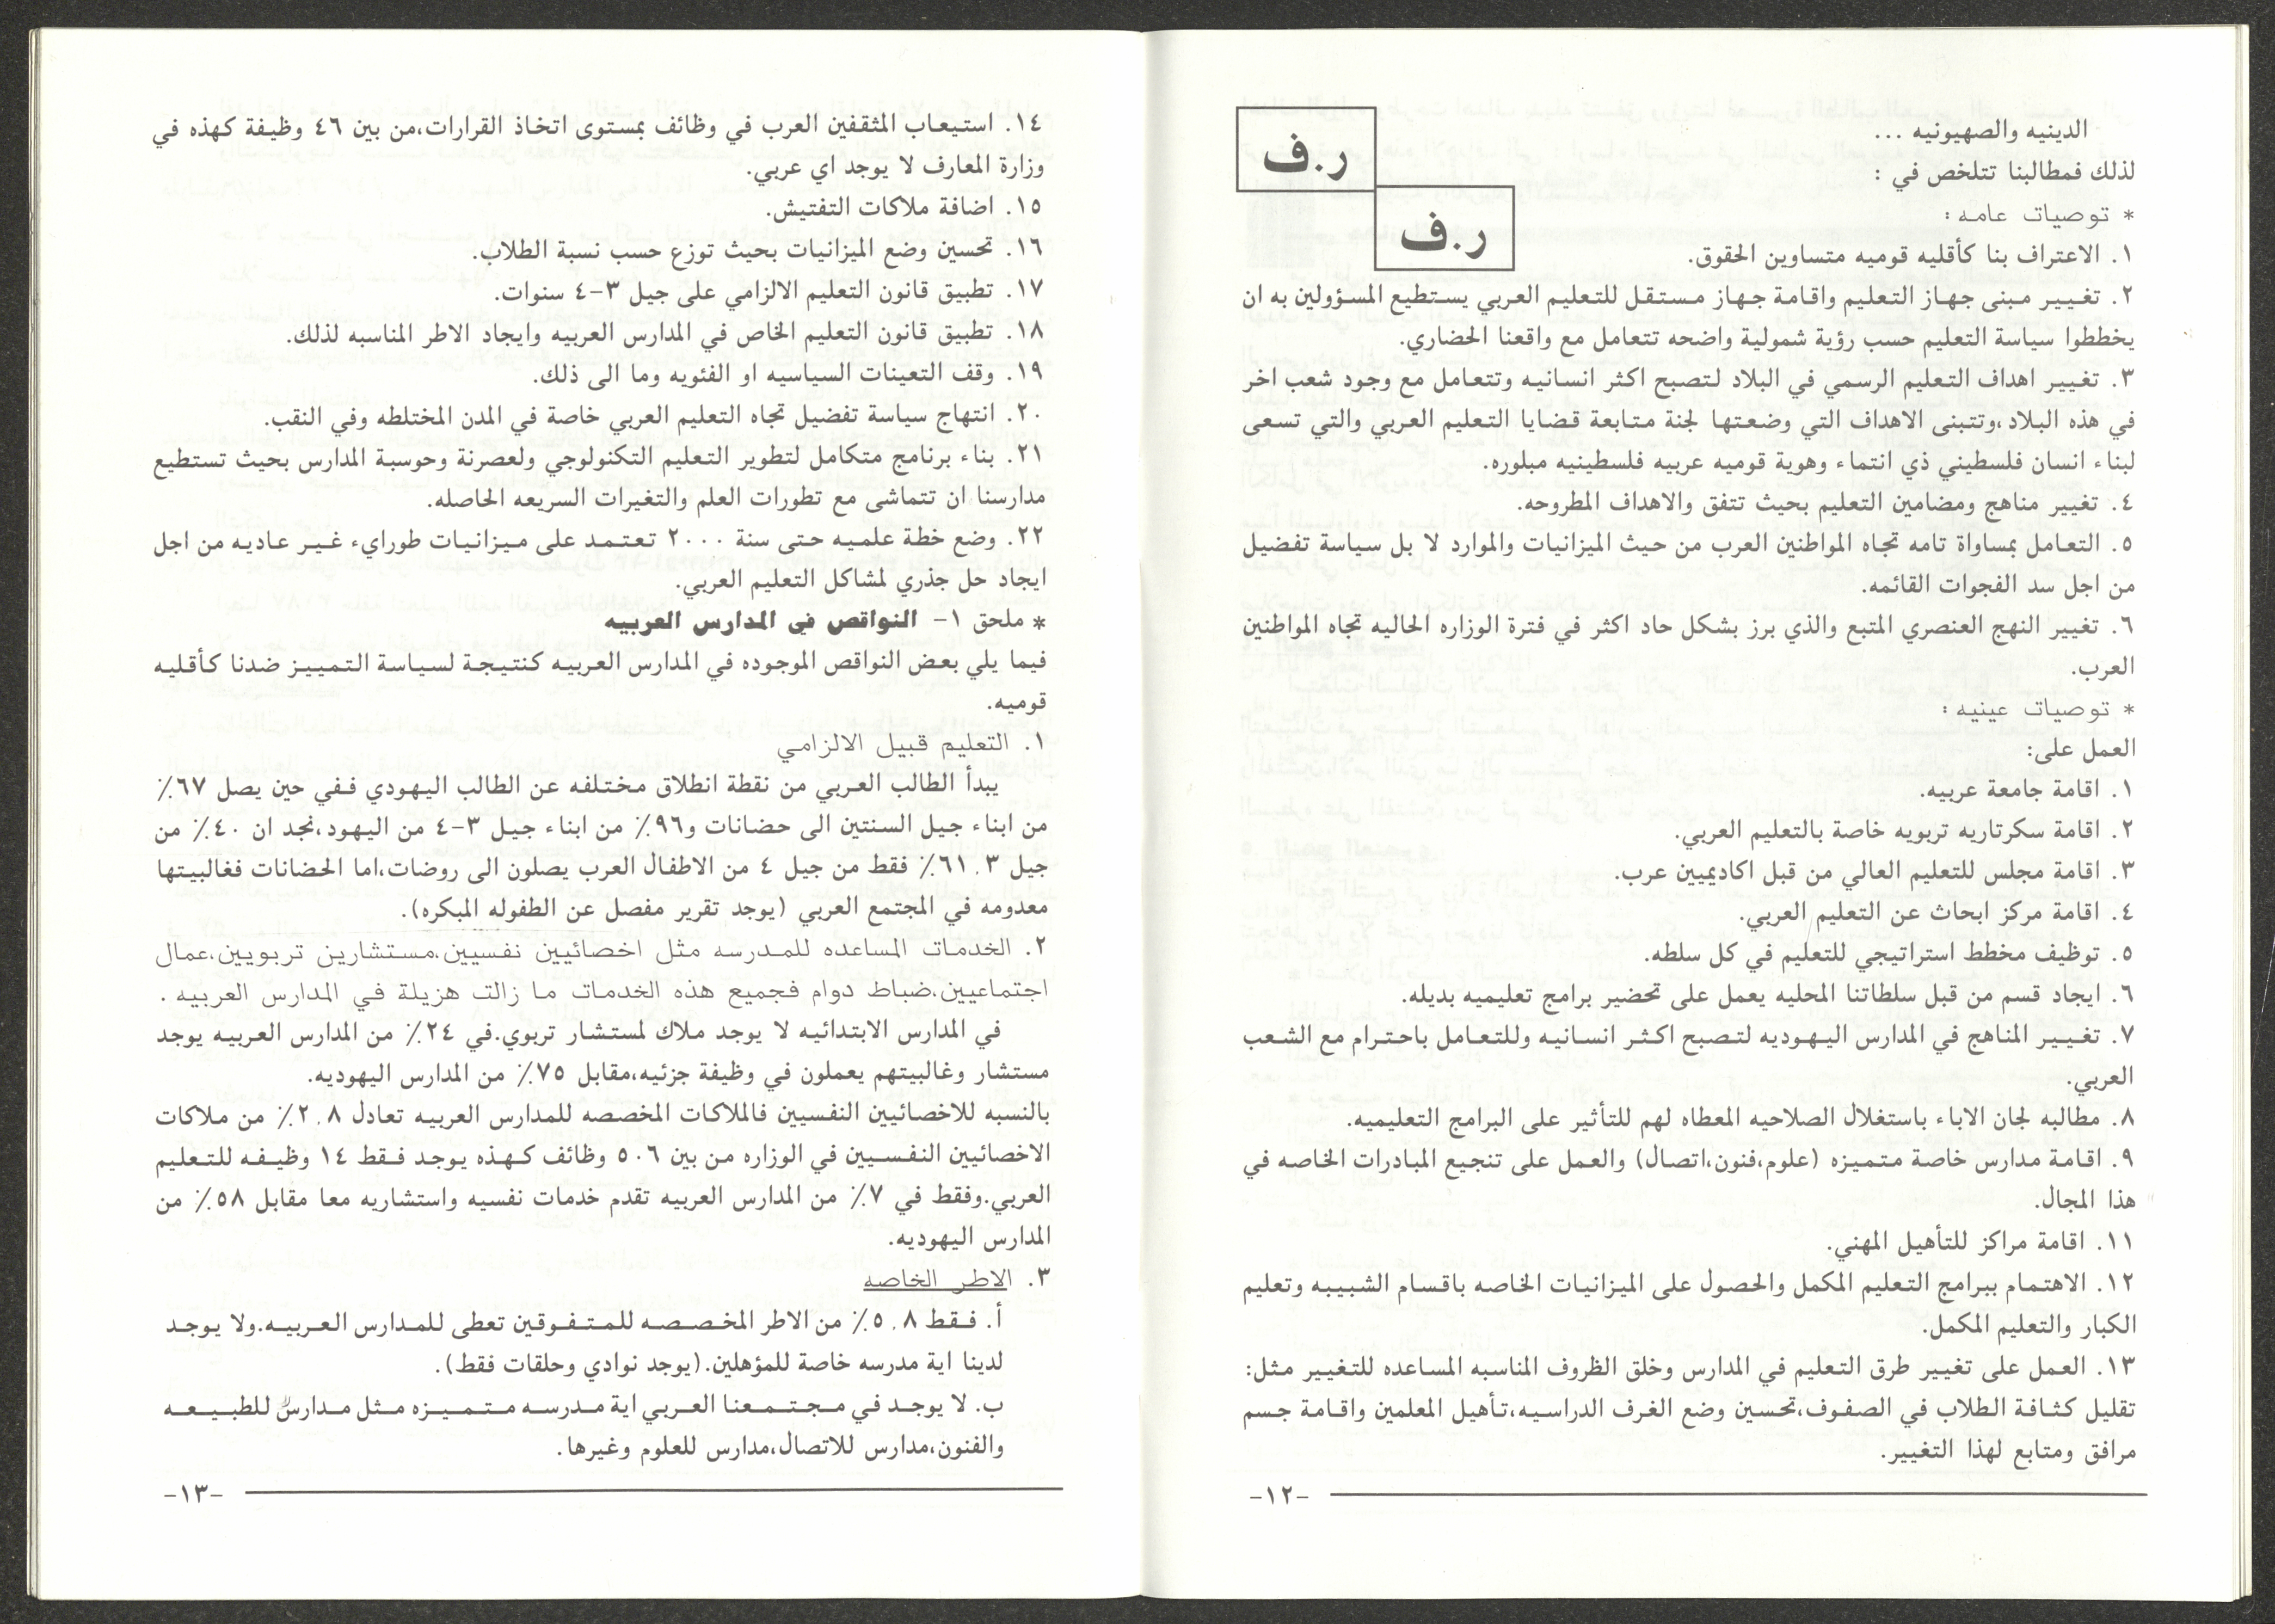 ر.ف
ر.ف
الدينيه والصهيونيه ...
لذلك فمطالبنا تتلخص في :
* توصيات عامه :
١. الاعتراف بنا كأقليه قوميه متساوين الحقوق.
٢. تغيير مبنى جهاز التعليم واقامة جهاز مستقل للتعليم العربي يستطيع المسؤولين به ان
يخططوا سياسة التعليم حسب رؤية شمولية واضحه تتعامل مع واقعنا الحضاري.
٣. تغيير اهداف التعليم الرسمي في البلاد لتصبح اكثر انسانيه وتتعامل مع وجود شعب اخر
في هذه البلاد،وتتبنى الاهداف التي وضعتها لجنة متابعة قضايا التعليم العربي والتي تسعى
لبناء انسان فلسطيني ذي انتماء وهوية قوميه عربيه فلسطينيه مبلوره.
٤. تغيير مناهج ومضامين التعليم بحيث تتفق والاهداف المطروحه.
٥. التعامل بمساواة تامه تجاه المواطنين العرب من حيث الميزانيات والموارد لا بل سياسة تفضيل
من اجل سد الفجوات القائمه.
٦. تغيير النهج العنصري المتبع والذي برز بشكل حاد اكثر في فترة الوزاره الحاليه تجاه المواطنين
العرب.
* توصيات عينيه :
العمل على:
١. اقامة جامعة عربيه.
٢. اقامة سكرتاريه تربويه خاصة بالتعليم العربي.
٣. اقامة مجلس للتعليم العالي من قبل اكاديميين عرب.
٤. اقامة مركز ابحاث عن التعليم العربي.
٥. توظيف مخطط استراتيجي للتعليم في كل سلطه.
٦. ايجاد قسم من قبل سلطاتنا المحليه يعمل على تحضير برامج تعليميه بديله.
٧. تغيير المناهج في المدارس اليهوديه لتصبح اكثر انسانيه وللتعامل باحترام مع الشعب
العربي.
٨. مطالبه لجان الاباء باستغلال الصلاحيه المعطاه لهم للتأثير على البرامج التعليميه.
٩. اقامة مدارس خاصة متميزه (علوم،فنون،اتصال) والعمل على تنجيع المبادرات الخاصه في
هذا المجال.
١١. اقامة مراكز للتأهيل المهني.
١٢. الاهتمام ببرامج التعليم المكمل والحصول على الميزانيات الخاصه باقسام الشبيبه وتعليم
الكبار والتعليم المكمل.
١٣. العمل على تغيير طرق التعليم في المدارس وخلق الظروف المناسبه المساعده للتغيير مثل:
تقليل كثافة الطلاب في الصفوف،تحسين وضع الغرف الدراسيه،تأهيل المعلمين واقامة جسم
مرافق ومتابع لهذا التغيير.
-١٢-
١٤. استيعاب المثقفين العرب في وظائف بمستوى اتخاذ القرارات،من بين ٤٦ وظيفة كهذه في
وزارة المعارف لا يوجد اي عربي.
١٥. اضافة ملاكات التفتيش.
١٦. تحسين وضع الميزانيات بحيث توزع حسب نسبة الطلاب.
١٧. تطبيق قانون التعليم الالزامي على جيل ٣-٤ سنوات.
١٨. تطبيق قانون التعليم الخاص في المدارس العربيه وايجاد الاطر المناسبه لذلك.
١٩. وقف التعينات السياسيه او الفئويه وما الى ذلك.
٢٠. انتهاج سياسة تفضيل تجاه التعليم العربي خاصة في المدن المختلطه وفي النقب.
٢١. بناء برنامج متكامل لتطوير التعليم التكنولوجي ولعصرنة وحوسبة المدارس بحيث تستطيع
مدارسنا ان تتماشى مع تطورات العلم والتغيرات السريعه الحاصله.
٢٢. وضع خطة علميه حتى سنة ٢٠٠٠ تعتمد على ميزانيات طوراىء غير عاديه من اجل
ايجاد حل جذري لمشاكل التعليم العربي.
* ملحق ١- النواقص في المدارس العربيه
فيما يلي بعض النواقص الموجوده في المدارس العربيه كنتيجة لسياسة التمييز ضدنا كأقليه
قوميه.
١. التعليم قبيل الالزامي
يبدأ الطالب العربي من نقطة انطلاق مختلفه عن الطالب اليهودي ففي حين يصل ٦٧٪
من ابناء جيل السنتين الى حضانات و٩٦٪ من ابناء جيل ٣-٤ من اليهود،نجد ان ٤٠٪ من
جيل ٣، ٦١٪ فقط من جيل ٤ من الاطفال العرب يصلون الى روضات،اما الحضانات فغالبيتها
معدومه في المجتمع العربي (يوجد تقرير مفصل عن الطفوله المبكره).
٢. الخدمات المساعده للمدرسه مثل اخصائيين نفسيين،مستشارين تربويين،عمال
اجتماعيين،ضباط دوام فجميع هذه الخدمات ما زالت هزيلة في المدارس العربيه .
في المدارس الابتدائيه لا يوجد ملاك لمستشار تربوي.في ٢٤٪ من المدارس العربيه يوجد
مستشار وغالبيتهم يعملون في وظيفة جزئيه،مقابل ٧٥٪ من المدارس اليهوديه.
بالنسبه للاخصائيين النفسيين فالملاكات المخصصه للمدارس العربيه تعادل ٢,٨٪ من ملاكات
الاخصائيين النفسيين في الوزاره من بين ٥٠٦ وظائف كهذه يوجد فقط ١٤ وظيفه للتعليم
العربي.وفقط في ٧٪ من المدارس العربيه تقدم خدمات نفسيه واستشاريه معا مقابل ٥٨٪ من
المدارس اليهوديه.
٣. الاطر الخاصه
أ. فقط ٥,٨٪ من الاطر المخصصه للمتفوقين تعطى للمدارس العربيه.ولا يوجد
لدينا اية مدرسه خاصة للمؤهلين.(يوجد نوادي وحلقات فقط).
ب. لا يوجد في مجتمعنا العربي اية مدرسه متميزه مثل مدارس للطبيعه
والفنون،مدارس للاتصال،مدارس للعلوم وغيرها.
-١٣-